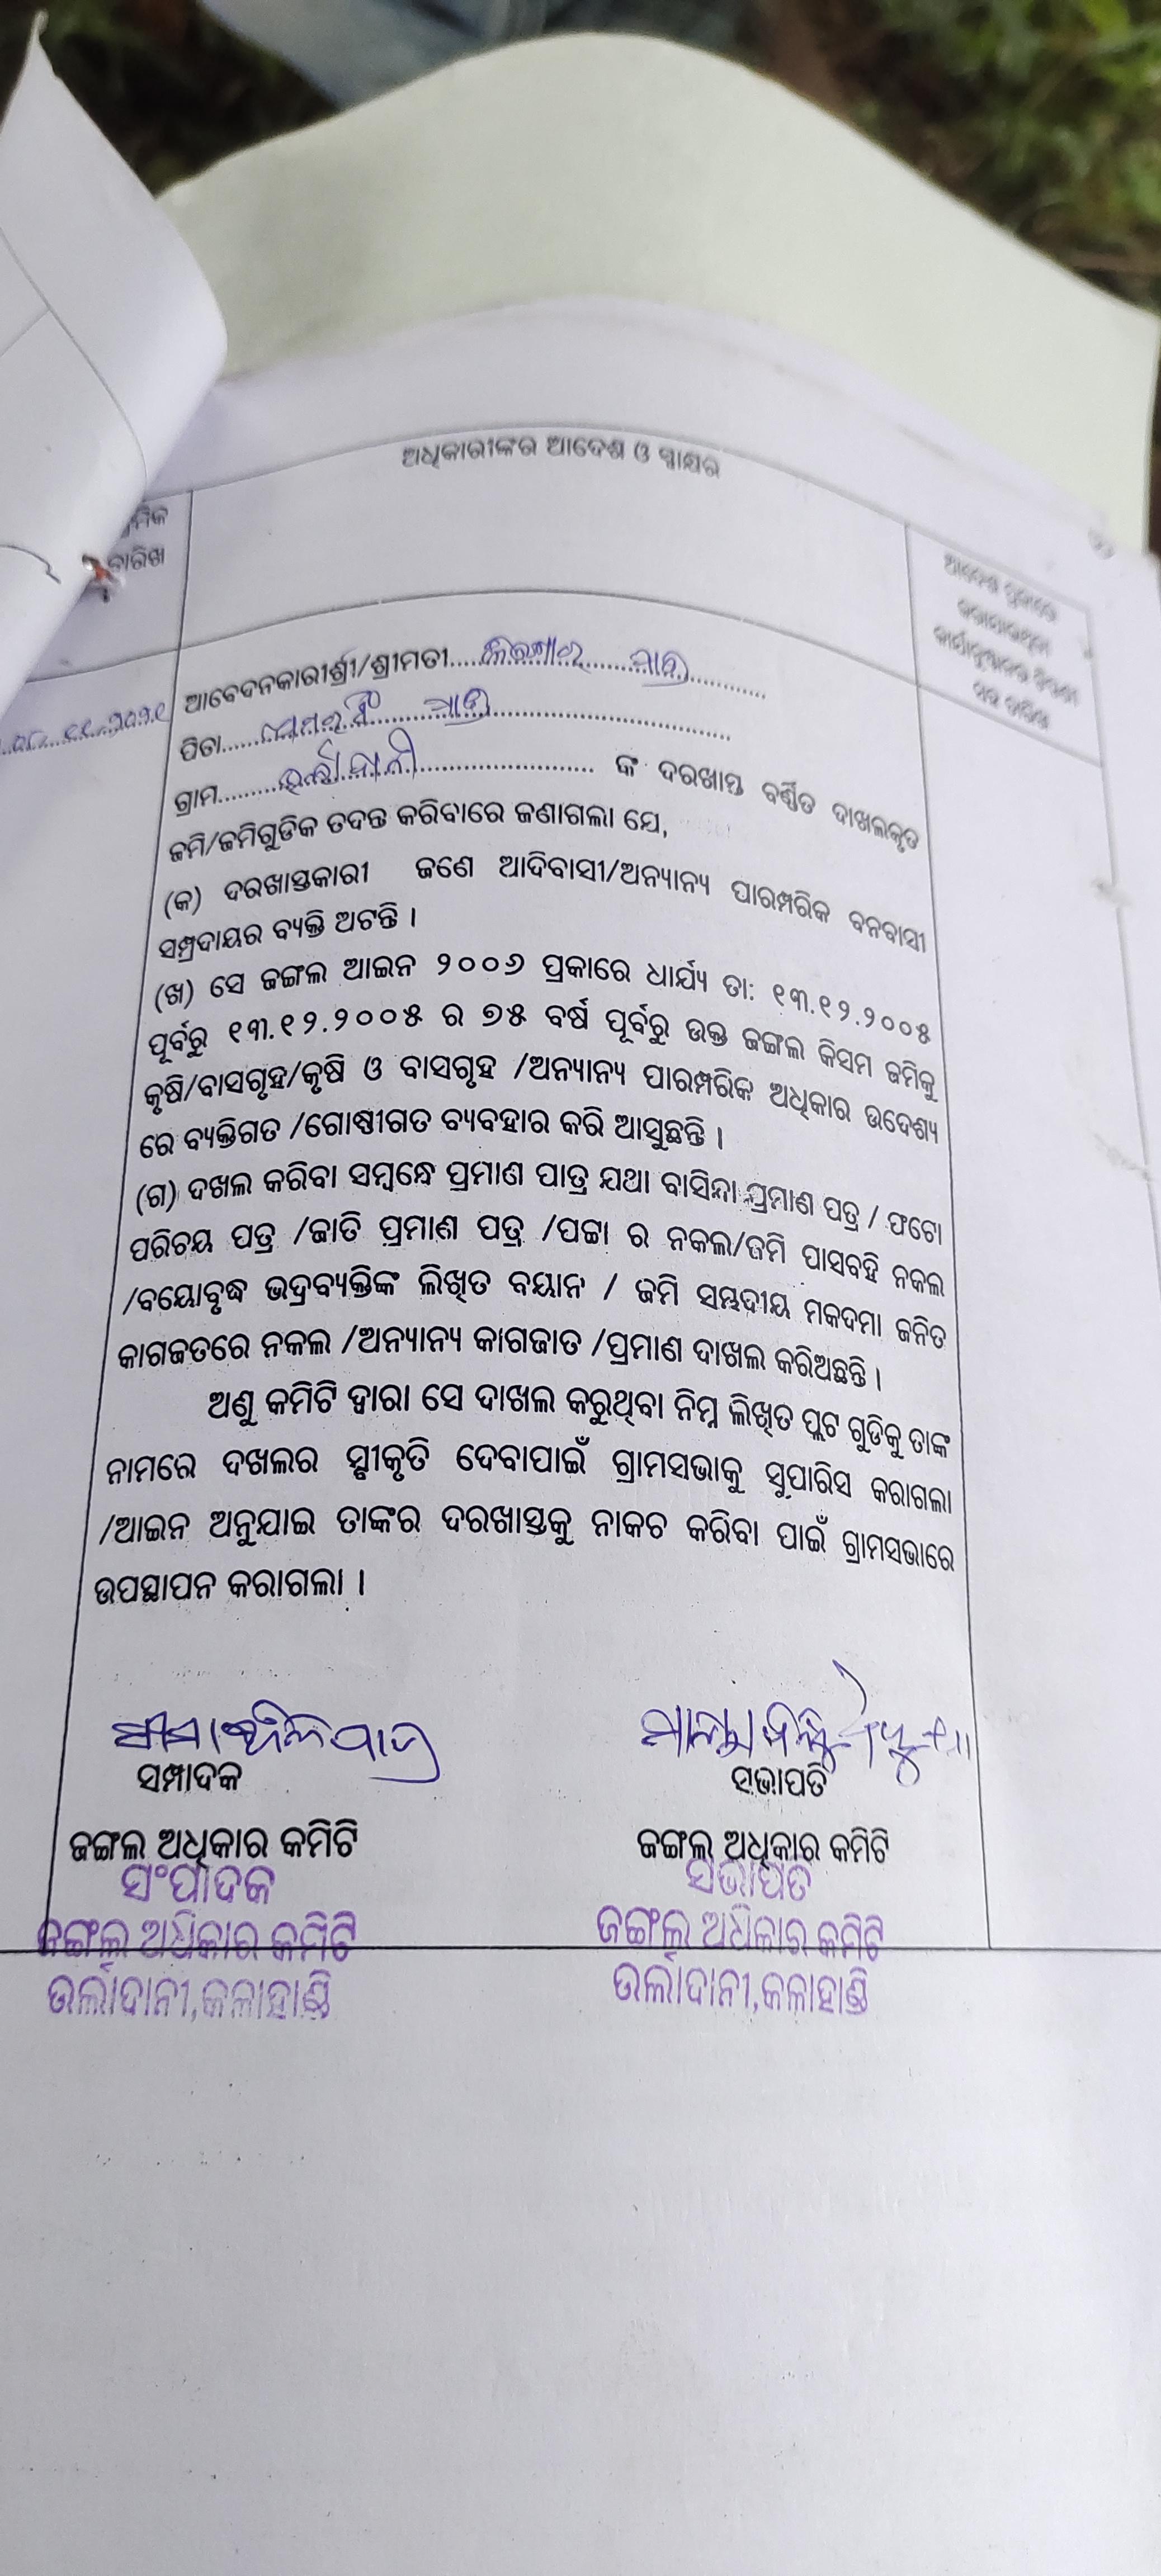 ଅଧିକାରୀଙ୍କର ଆଦେଶ ଓ ସ୍ୱାକ୍ଷର
ତାରିଖ
ଆବେଦନକାରୀଶ୍ରୀ/ଶ୍ରୀମତୀ.......... ମାଝୀ
ପିତା.......... ମାଝୀ
ଗ୍ରାମ.......... ଉର୍ଲାଦାନୀ .......... ଙ୍କ ଦରଖାସ୍ତ ବର୍ଣ୍ଣିତ ଦାଖଲକୃତ
ଜମି/ଜମିଗୁଡିକ ତଦନ୍ତ କରିବାରେ ଜଣାଗଲା ଯେ,
(କ) ଦରଖାସ୍ତକାରୀ ଜଣେ ଆଦିବାସୀ/ଅନ୍ୟାନ୍ୟ ପାରମ୍ପରିକ ବନବାସୀ
ସମ୍ପ୍ରଦାୟର ବ୍ୟକ୍ତି ଅଟନ୍ତି ।
(ଖ) ସେ ଜଙ୍ଗଲ ଆଇନ ୨୦୦୬ ପ୍ରକାରେ ଧାର୍ଯ୍ୟ ତା: ୧୩.୧୨.୨୦୦୫
ପୂର୍ବରୁ ୧୩.୧୨.୨୦୦୫ ର ୭୫ ବର୍ଷ ପୂର୍ବରୁ ଉକ୍ତ ଜଙ୍ଗଲ କିସମ ଜମିକୁ
କୃଷି/ବାସଗୃହ/କୃଷି ଓ ବାସଗୃହ /ଅନ୍ୟାନ୍ୟ ପାରମ୍ପରିକ ଅଧିକାର ଉଦେଶ୍ୟ
ରେ ବ୍ୟକ୍ତିଗତ /ଗୋଷ୍ଠୀଗତ ବ୍ୟବହାର କରି ଆସୁଛନ୍ତି ।
(ଗ) ଦଖଲ କରିବା ସମ୍ବନ୍ଧେ ପ୍ରମାଣ ପାତ୍ର ଯଥା ବାସିନ୍ଦା ପ୍ରମାଣ ପତ୍ର / ଫଟୋ
ପରିଚୟ ପତ୍ର /ଜାତି ପ୍ରମାଣ ପତ୍ର /ପଟ୍ଟା ର ନକଲ/ଜମି ପାସବହି ନକଲ
/ବୟୋବୃଦ୍ଧ ଭଦ୍ରବ୍ୟକ୍ତିଙ୍କ ଲିଖିତ ବୟାନ / ଜମି ସମ୍ଭଦୀୟ ମକଦମା ଜନିତ
କାଗଜତରେ ନକଲ /ଅନ୍ୟାନ୍ୟ କାଗଜାତ /ପ୍ରମାଣ ଦାଖଲ କରିଅଛନ୍ତି ।
ଅଣୁ କମିଟି ଦ୍ୱାରା ସେ ଦାଖଲ କରୁଥିବା ନିମ୍ନ ଲିଖିତ ପ୍ଲଟ ଗୁଡିକୁ ତାଙ୍କ
ନାମରେ ଦଖଲର ସ୍ୱୀକୃତି ଦେବାପାଇଁ ଗ୍ରାମସଭାକୁ ସୁପାରିସ କରାଗଲା
/ଆଇନ ଅନୁଯାଇ ତାଙ୍କର ଦରଖାସ୍ତକୁ ନାକଚ କରିବା ପାଇଁ ଗ୍ରାମସଭାରେ
ଉପସ୍ଥାପନ କରାଗଲା ।
ସମ୍ପାଦକ ସଭାପତି
ଜଙ୍ଗଲ ଅଧିକାର କମିଟି ଜଙ୍ଗଲ ଅଧିକାର କମିଟି
ସଂପାଦକ ସଭାପତି
ଜଙ୍ଗଲ ଅଧିକାର କମିଟି ଜଙ୍ଗଲ ଅଧିକାର କମିଟି
ଉର୍ଲାଦାନୀ,କଳାହାଣ୍ଡି ଉର୍ଲାଦାନୀ,କଳାହାଣ୍ଡି